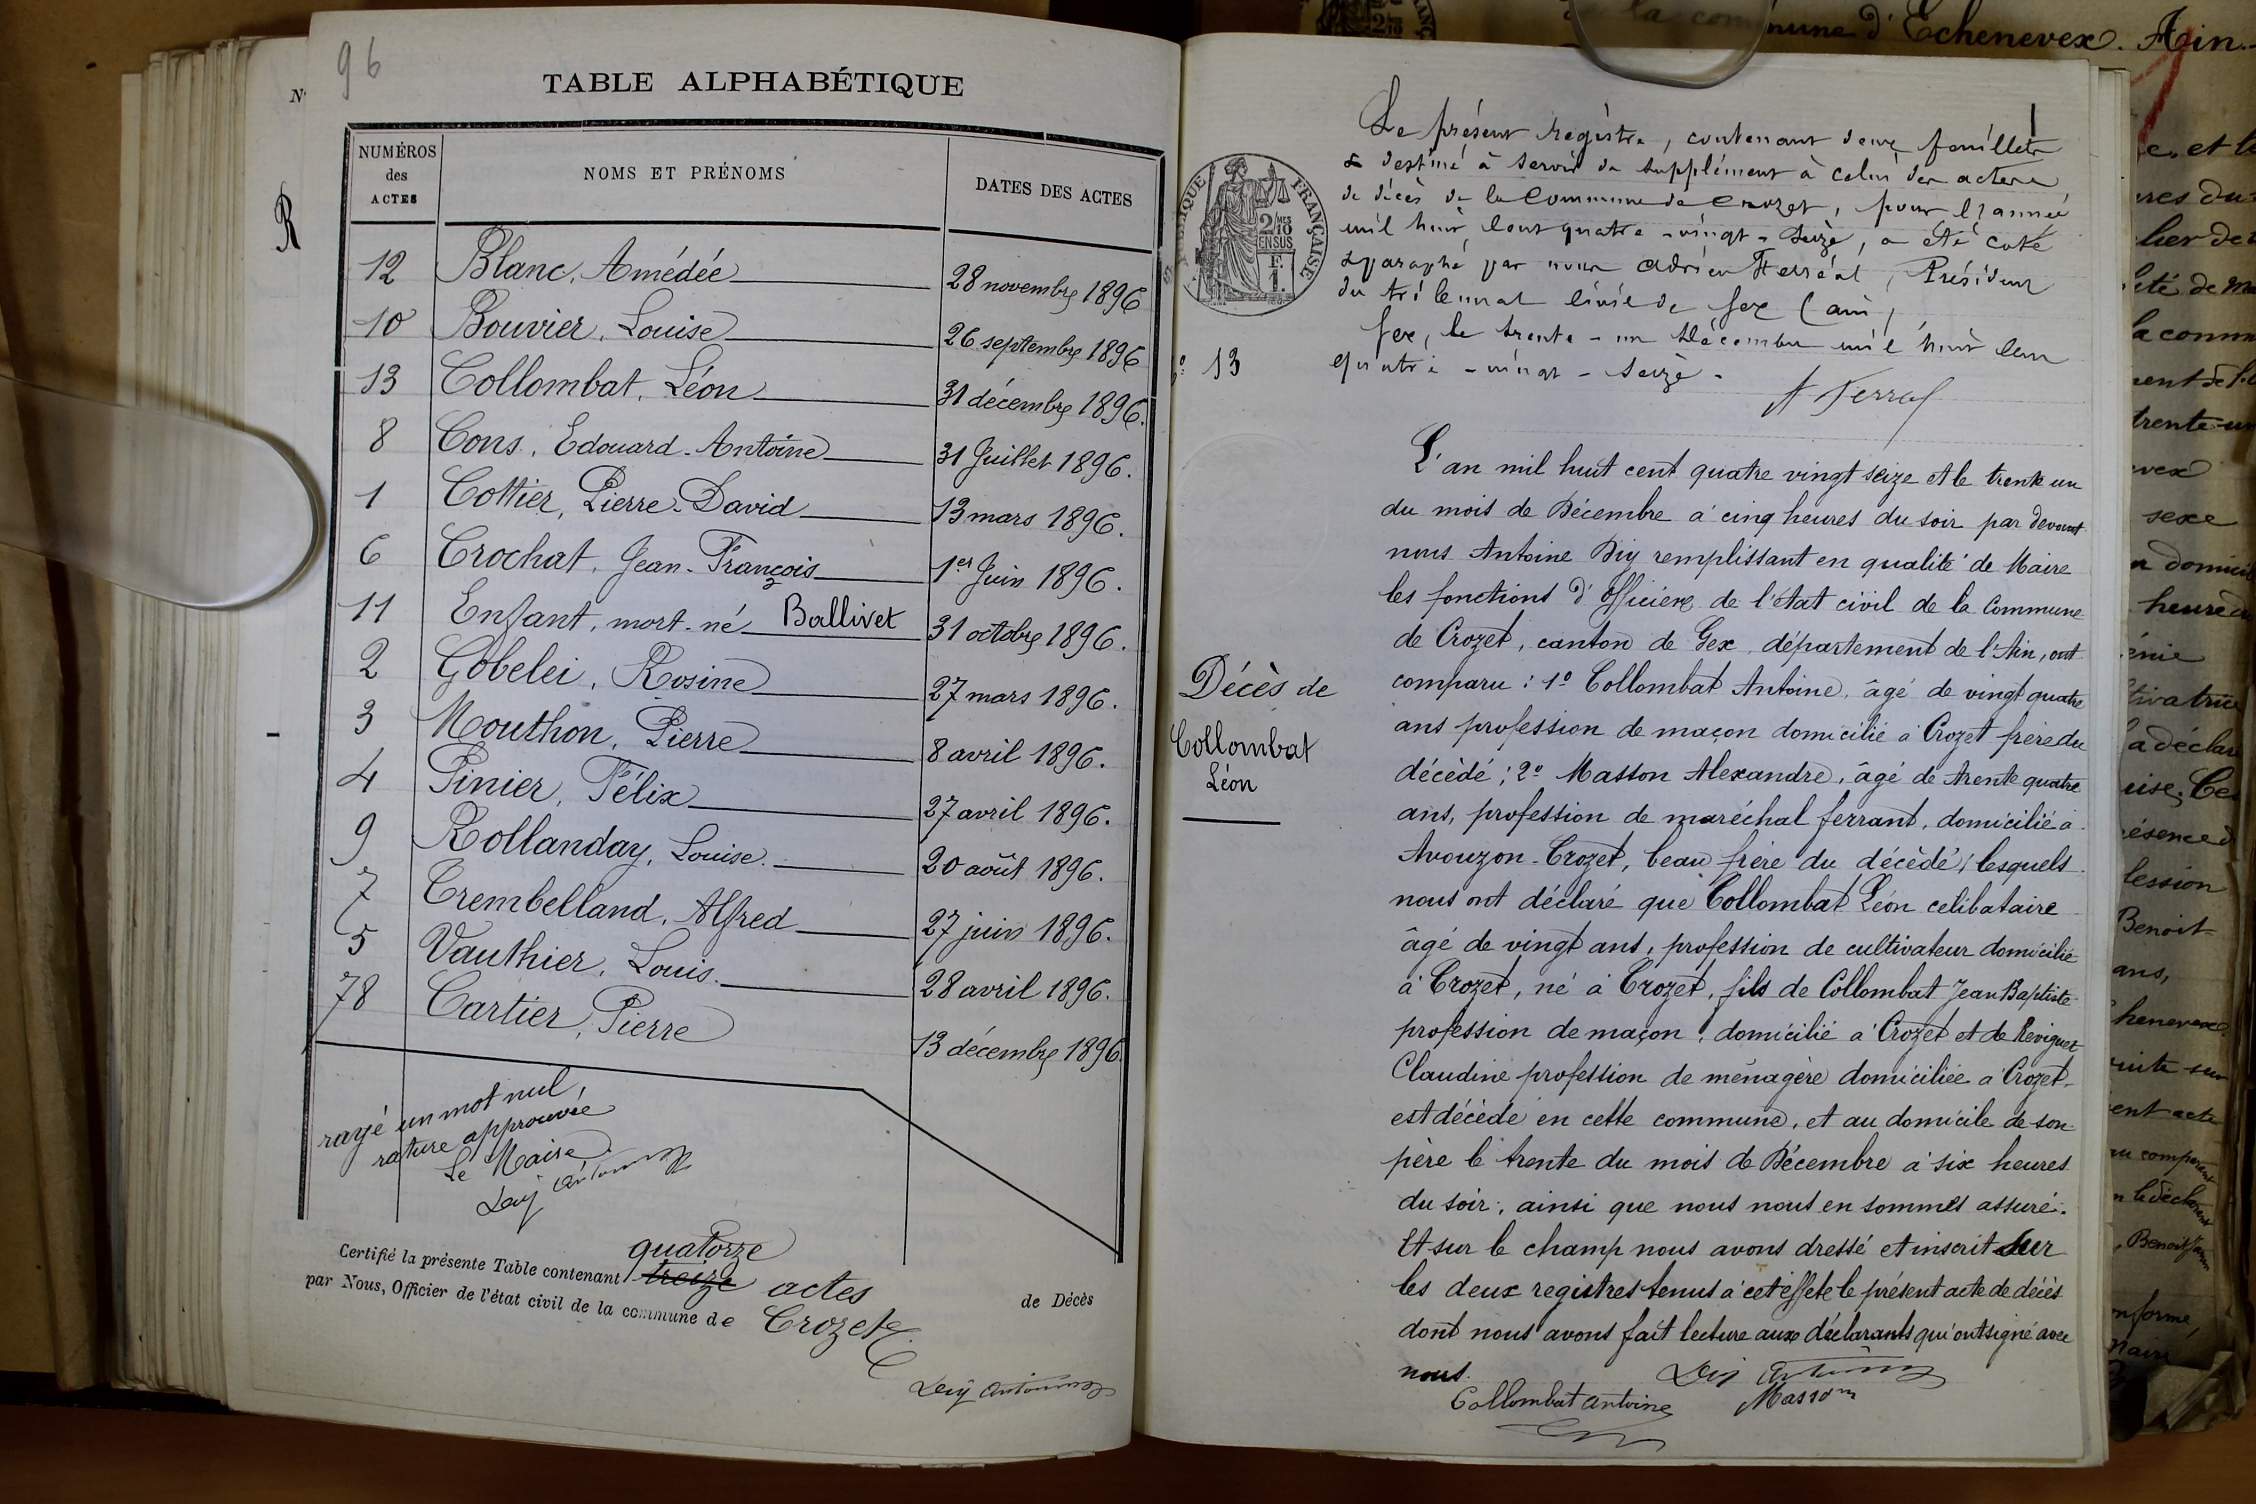 96
TABLE ALPHABÉTIQUE
NUMÉROS
des
ACTES
NOMS ET PRÉNOMS
DATES DES ACTES
12 Blanc, Amédée 28 novembre 1896
10 Bouvier, Louise 26 septembre 1896
13 Collombat, Léon 31 décembre 1896.
8 Cons, Edouard-Antoine 31 Juillet 1896.
1 Cottier, Pierre-David 13 mars 1896.
6 Crochat, Jean-François 1er Juin 1896.
11 Enfant, mort-né Ballivet 31 octobre 1896.
2 Gobelei, Rosine 27 mars 1896.
3 Mouthon, Pierre 8 avril 1896.
4 Pinier, Félix 27 avril 1896.
9 Rollanday, Louise. 20 août 1896.
7 Trembelland, Alfred 27 juin 1896.
5 Vauthier, Louis. 28 avril 1896.
78 Cartier, Pierre 13 décembre 1896.
rayé un mot nul,
rature approuvée
Le Maire
Antoine
quatorze
Certifié la présente Table contenant treize actes de Décès
par Nous, Officier de l'état civil de la commune de Crozet.
Antoine
Le présent registre, contenant deux feuillets
& destiné à servir de supplément à celui des actes
de décès de la Commune de Crozet, pour l'année
mil huit cent quatre-vingt-seize, a été coté
& paraphé par nous Adrien, Président
du tribunal civil de Gex (ain)
Gex, le trente-un Décembre mil huit cent
quatre-vingt-seize.
RÉPUBLIQUE FRANÇAISE
2/10 MES
EN SUS
F.
1.
No 13
Décès de
Collombat
Léon
L'an mil huit cent quatre vingt seize et le trente un
du mois de Décembre à cinq heures du soir par devant
nous Antoine remplissant en qualité de Maire
les fonctions d'officier de l'état civil de la Commune
de Crozet, canton de Gex, département de l'Ain, ont
comparu : 1o Collombat Antoine, âgé de vingt quatre
ans profession de maçon domicilié à Crozet frère du
décédé ; 2o Masson Alexandre, âgé de trente quatre
ans, profession de maréchal ferrant, domicilié à
Avouzon-Crozet, beau frère du décédé ; lesquels
nous ont déclaré que Collombat Léon celibataire
âgé de vingt ans, profession de cultivateur domicilié
à Crozet, né à Crozet, fils de Collombat Jean Baptiste
profession de maçon, domicilié à Crozet et de
Claudine profession de ménagère domiciliée à Crozet
est décédé en cette commune, et au domicile de son
père le trente du mois de Décembre à six heures
du soir ; ainsi que nous nous en sommes assuré.
Et sur le champ nous avons dressé et inscrit sur
les deux registres tenus à cet effet le présent acte de décès
dont nous avons fait lecture aux déclarants qui ont signé avec
nous.
Antoine
Collombat antoine
Masson
de la commune d'Echenevex. Ain.